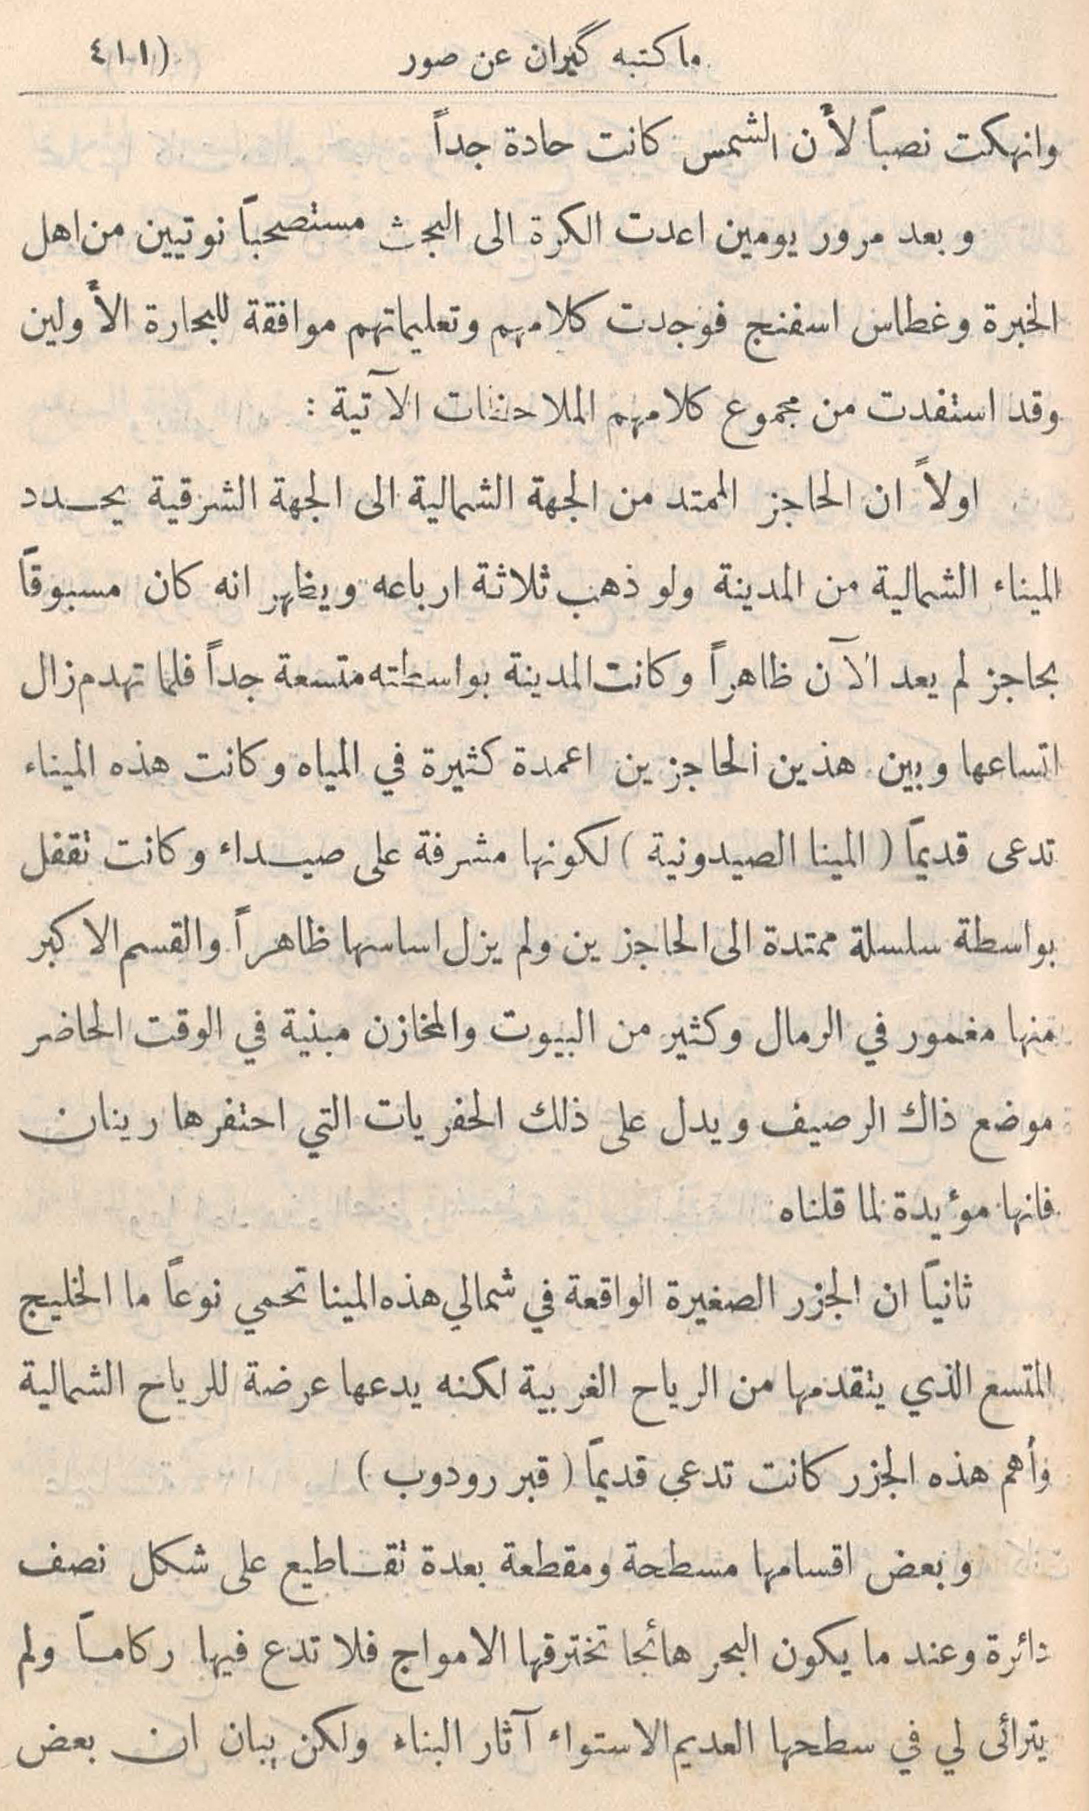 ما كتبه گيران عن صور
(٤١١
وانهكت نصباً لأن الشمس كانت حادة جداً
وبعد مرور يومين اعدت الكرة الى البحث مستصحباً نوتيين من اهل
الخبرة وغطاس اسفنج فوجدت كلامهم وتعليماتهم موافقة للبحارة الأولين
وقد استفدت من مجموع كلامهم الملاحظات الآتية :
اولاً ان الحاجز الممتد من الجهة الشمالية الى الجهة الشرقية يحـدد
الميناء الشمالية من المدينة ولو ذهب ثلاثة ارباعه ويظهر انه كان مسبوقاً
بحاجز لم يعد الآن ظاهراً وكانت المدينة بواسطته متسعة جداً فلما تهدم زال
اتساعها وبين هذين الحاجزين اعمدة كثيرة في المياه وكانت هذه الميناء
تدعى قديماً ( المينا الصيدونية ) لكونها مشرفة على صيـداء وكانت تقفل
بواسطة سلسلة ممتدة الى الحاجزين ولم يزل اساسها ظاهراً والقسم الاكبر
منها مغمور في الرمال وكثير من البيوت والمخازن مبنية في الوقت الحاضر
موضع ذاك الرصيف ويدل على ذلك الحفريات التي احتفرها رينان
فانها مؤيدة لما قلناه
ثانياً ان الجزر الصغيرة الواقعة في شمالي هذه المينا تحمي نوعاً ما الخليج
المتسع الذي يتقدمها من الرياح الغربية لكنه يدعها عرضة للرياح الشمالية
وأهم هذه الجزر كانت تدعى قديماً ( قبر رودوب )
وبعض اقسامها مسطحة ومقطعة بعدة تقـاطيع على شكل نصف
دائرة وعند ما يكون البحر هائجا تخترقها الامواج فلا تدع فيها ركامـاً ولم
يترائى لي في سطحها العديم الاستواء آثار البناء ولكن يبان ان بعض